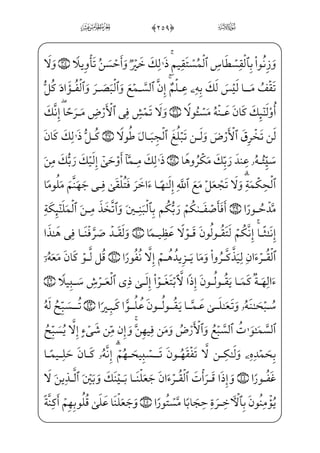 الجزء الخامس عشر ﴿٢٥٩﴾ سورة الإسراء
وَزِنُوا۟ بِٱلْقِسْطَاسِ ٱلْمُسْتَقِيمِ ۚ ذَٰلِكَ خَيْرٌ وَأَحْسَنُ تَأْوِيلًا ﴿٣٥﴾ وَلَا
تَقْفُ مَا لَيْسَ لَكَ بِهِۦ عِلْمٌ ۚ إِنَّ ٱلسَّمْعَ وَٱلْبَصَرَ وَٱلْفُؤَادَ كُلُّ
أُو۟لَٰٓئِكَ كَانَ عَنْهُ مَسْـُٔولًا ﴿٣٦﴾ وَلَا تَمْشِ فِى ٱلْأَرْضِ مَرَحًا ۖ إِنَّكَ
لَن تَخْرِقَ ٱلْأَرْضَ وَلَن تَبْلُغَ ٱلْجِبَالَ طُولًا ﴿٣٧﴾ كُلُّ ذَٰلِكَ كَانَ
سَيِّئُهُۥ عِندَ رَبِّكَ مَكْرُوهًا ﴿٣٨﴾ ذَٰلِكَ مِمَّآ أَوْحَىٰٓ إِلَيْكَ رَبُّكَ مِنَ
ٱلْحِكْمَةِ ۗ وَلَا تَجْعَلْ مَعَ ٱللَّهِ إِلَٰهًا ءَاخَرَ فَتُلْقَىٰ فِى جَهَنَّمَ مَلُومًا
مَّدْحُورًا ﴿٣٩﴾ أَفَأَصْفَىٰكُمْ رَبُّكُم بِٱلْبَنِينَ وَٱتَّخَذَ مِنَ ٱلْمَلَٰٓئِكَةِ
إِنَٰثًا ۚ إِنَّكُمْ لَتَقُولُونَ قَوْلًا عَظِيمًا ﴿٤٠﴾ وَلَقَدْ صَرَّفْنَا فِى هَٰذَا
ٱلْقُرْءَانِ لِيَذَّكَّرُوا۟ وَمَا يَزِيدُهُمْ إِلَّا نُفُورًا ﴿٤١﴾ قُل لَّوْ كَانَ مَعَهُۥٓ
ءَالِهَةٌ كَمَا يَقُولُونَ إِذًا لَّٱبْتَغَوْا۟ إِلَىٰ ذِى ٱلْعَرْشِ سَبِيلًا ﴿٤٢﴾
سُبْحَٰنَهُۥ وَتَعَٰلَىٰ عَمَّا يَقُولُونَ عُلُوًّا كَبِيرًا ﴿٤٣﴾ تُسَبِّحُ لَهُ
ٱلسَّمَٰوَٰتُ ٱلسَّبْعُ وَٱلْأَرْضُ وَمَن فِيهِنَّ ۚ وَإِن مِّن شَىْءٍ إِلَّا يُسَبِّحُ
بِحَمْدِهِۦ وَلَٰكِن لَّا تَفْقَهُونَ تَسْبِيحَهُمْ ۗ إِنَّهُۥ كَانَ حَلِيمًا
غَفُورًا ﴿٤٤﴾ وَإِذَا قَرَأْتَ ٱلْقُرْءَانَ جَعَلْنَا بَيْنَكَ وَبَيْنَ ٱلَّذِينَ لَا
يُؤْمِنُونَ بِٱلْءَاخِرَةِ حِجَابًا مَّسْتُورًا ﴿٤٥﴾ وَجَعَلْنَا عَلَىٰ قُلُوبِهِمْ أَكِنَّةً